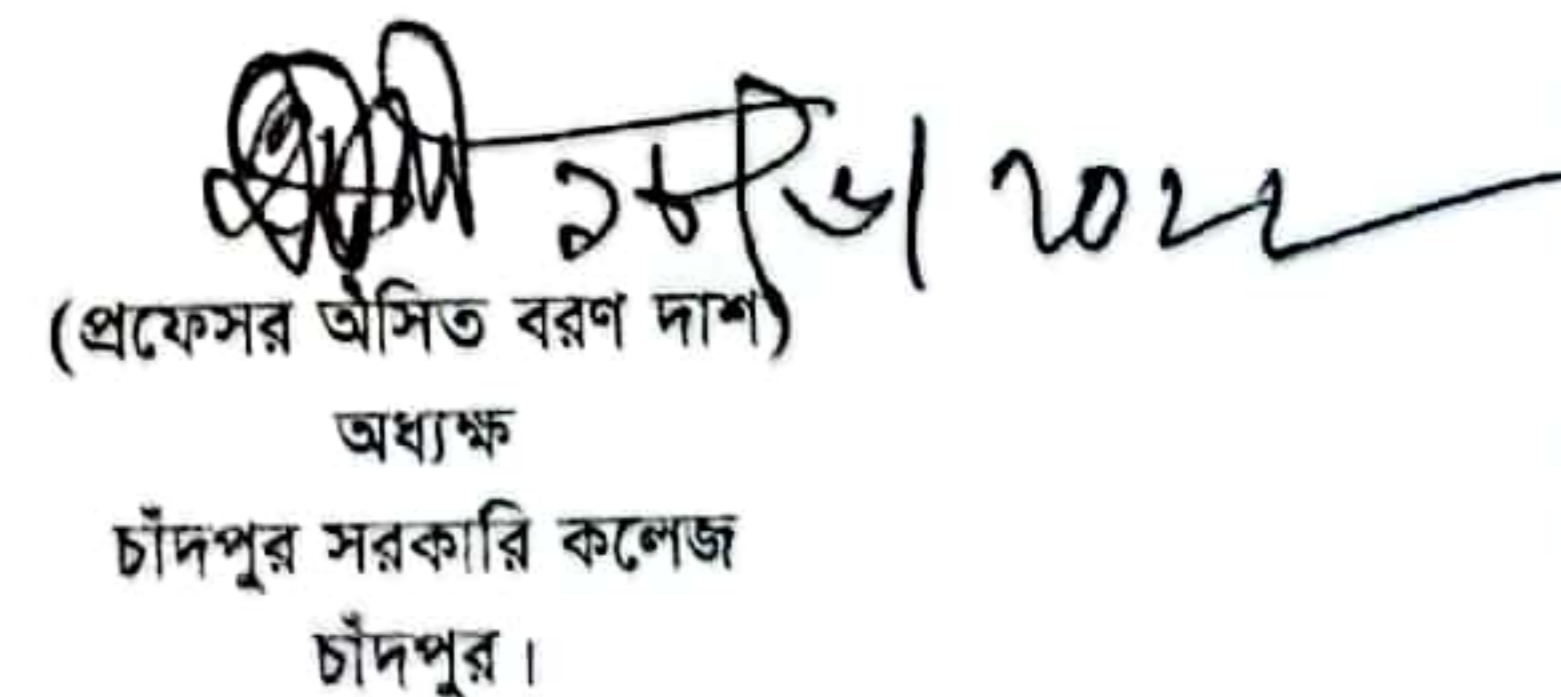 (প্রফেসর অসিত বরণ দাশ)
অধ্যক্ষ
চাঁদপুর সরকারি কলেজ
চাঁদপুর।